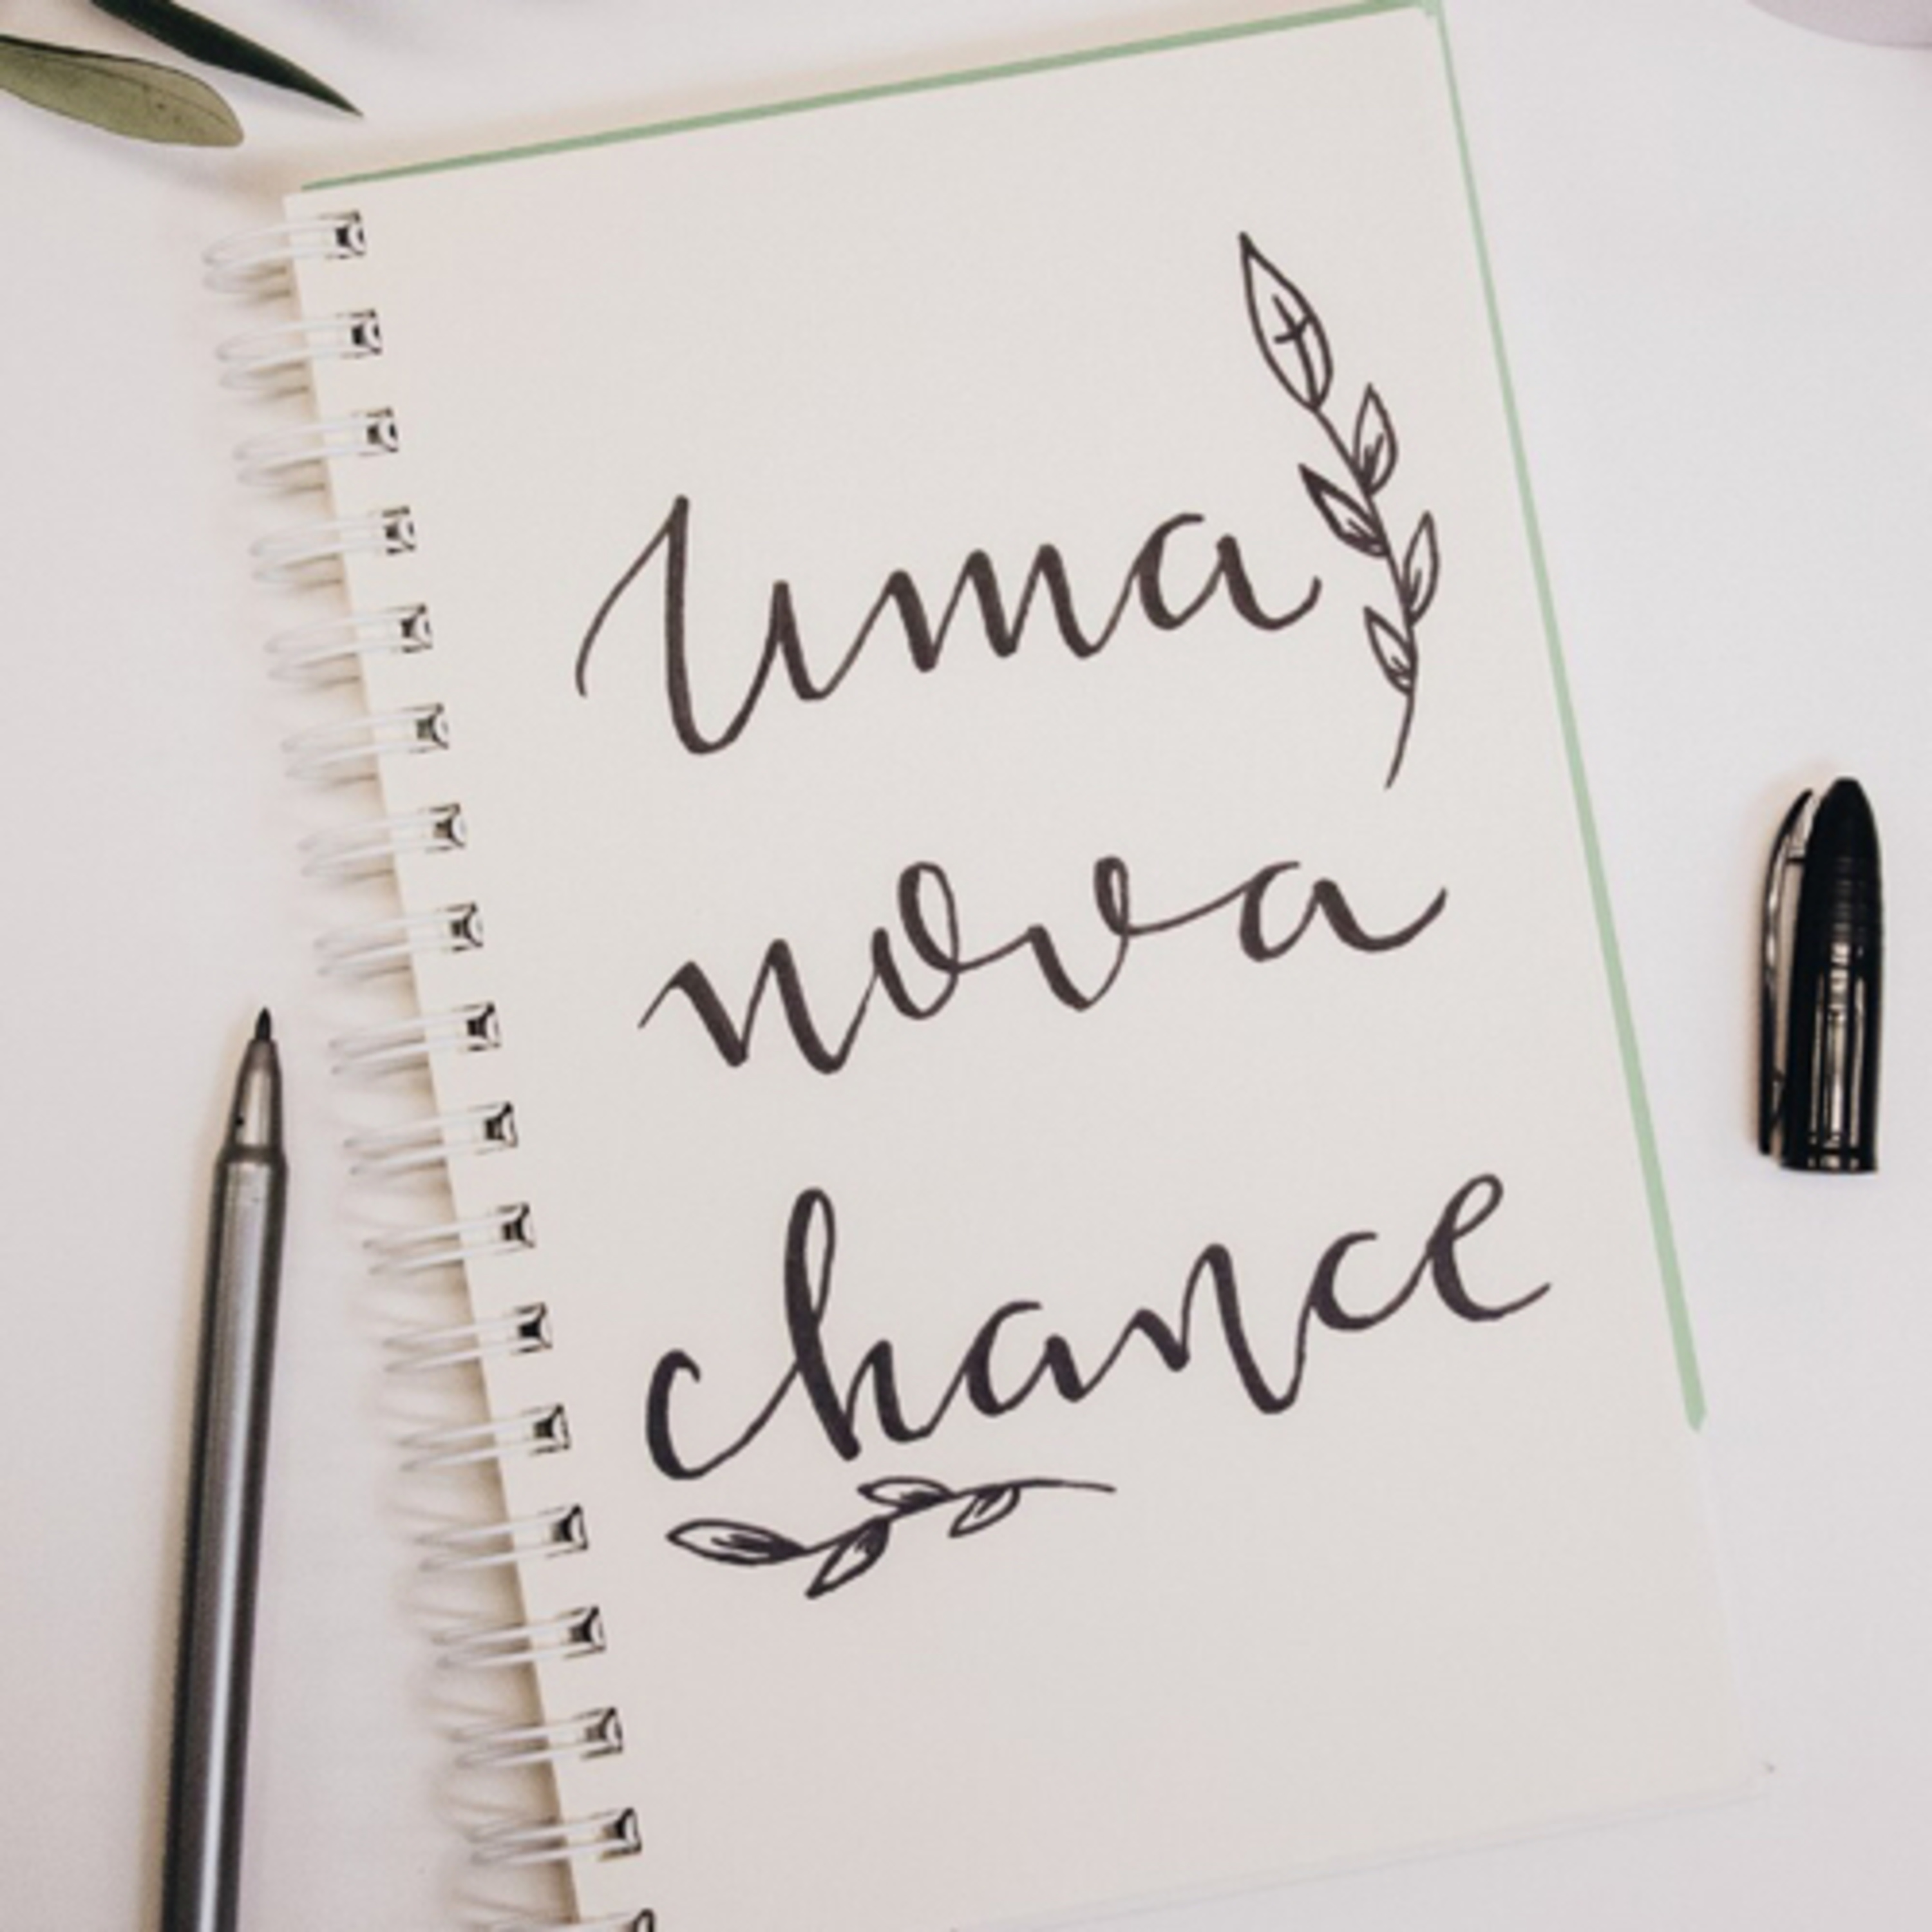 Uma
nova
chance